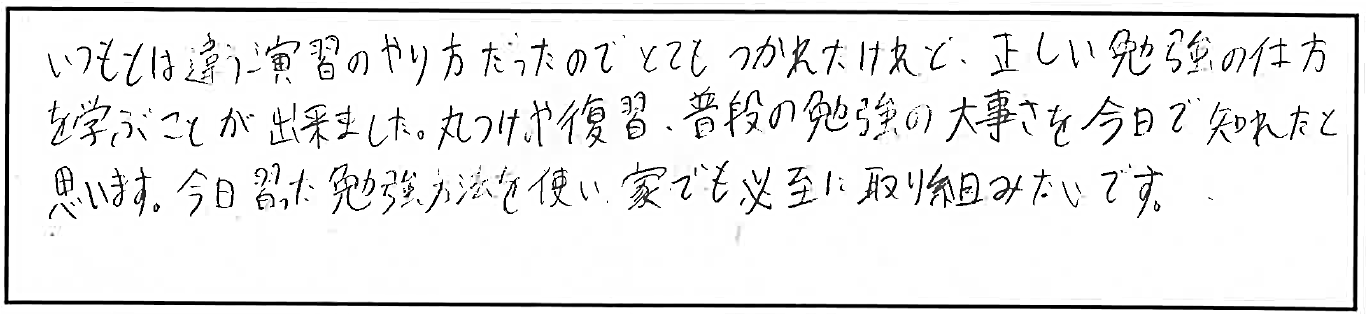 いつもとは違う演習のやり方だったのでとてもつかれたけれど、正しい勉強の仕方
を学ぶことが出来ました。丸つけや復習、普段の勉強の大事さを今日で知れたと
思います。今日習った勉強方法を使い家でも必至に取り組みたいです。